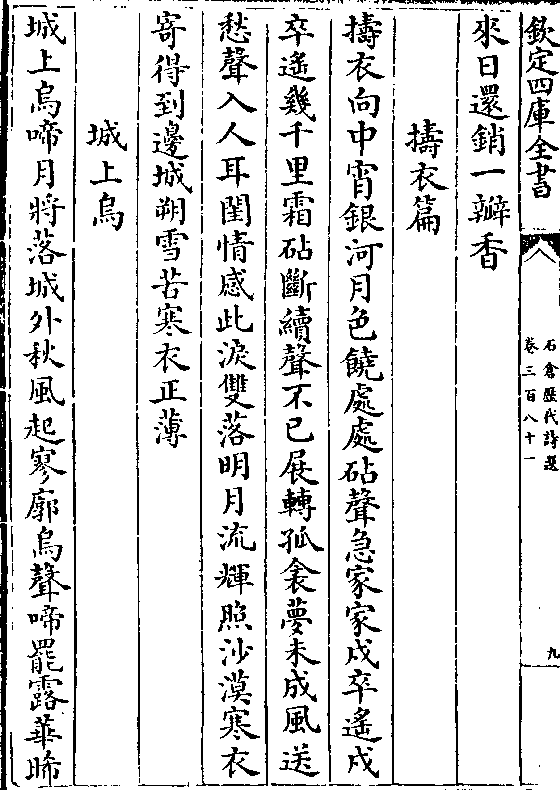 欽定四庫全書
石倉歷代詩選
卷三百八十一
九
來日還銷一瓣香
擣衣篇
擣衣向中宵銀河月色饒處處砧聲急家家戍卒遙戍
卒遙幾千里霜砧斷續聲不已展轉孤衾夢未成風送
愁聲入人耳閨情感此淚雙落明月流輝照沙漠寒衣
寄得到邊城朔雪苦寒衣正薄
城上烏
城上烏啼月將落城外秋風起寥廓烏聲啼罷露華晞